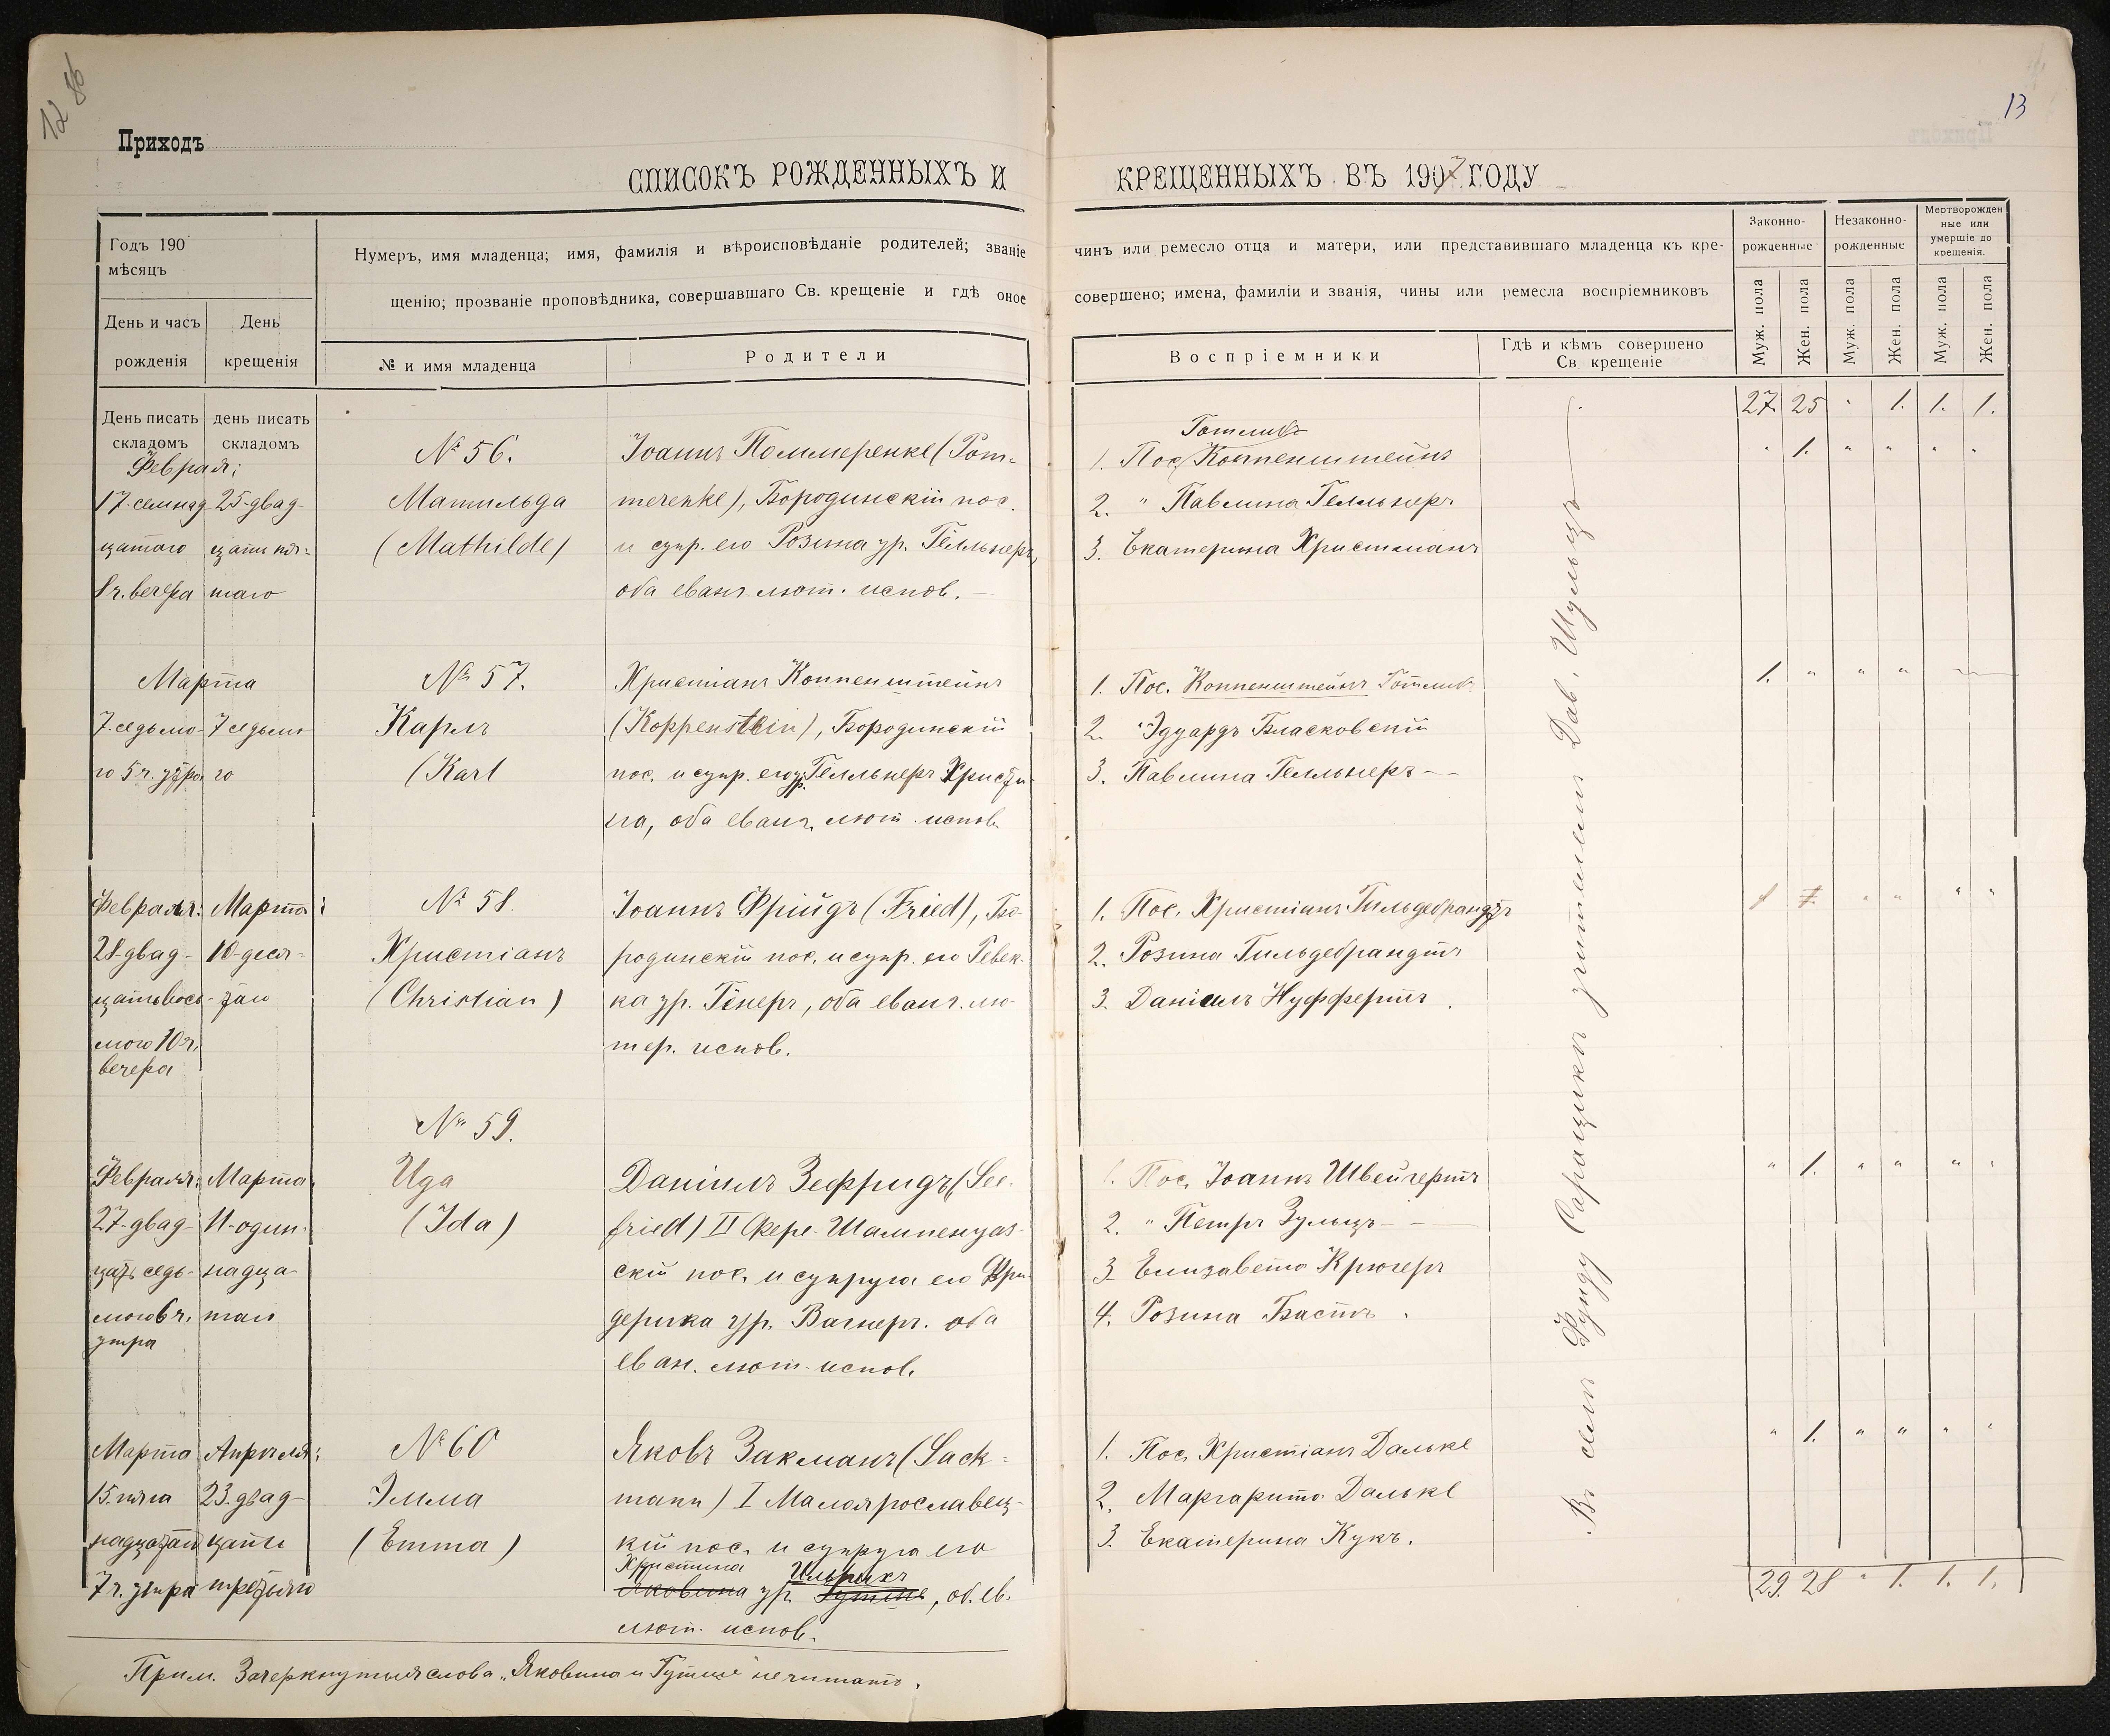 12 86
13
Приходъ
СПИСОКЪ РОЖДЕННЫХЪ И КРЕЩЕННЫХЪ ВЪ 1907 ГОДУ
Годъ 190
мѣсяцъ
День и часъ рожденія
День крещенія
Нумеръ, имя младенца; имя, фамилія и вѣроисповѣданіе родителей; званіе чинъ или ремесло отца и матери, или представившаго младенца къ кре-
щенію; прозваніе проповѣдника, совершавшаго Св. крещеніе и гдѣ оное совершено; имена, фамиліи и званія, чины или ремесла воспріемниковъ
№ и имя младенца
Родители
Воспріемники
Гдѣ и кѣмъ совершено
Св крещеніе
Законно-
рожденные
Незаконно-
рожденные
Мертворожден
ные или
умершіе до
крещенія.
Муж. пола
Жен. пола
Муж. пола
Жен. пола
Муж. пола
Жен. пола
27. 25 " 1. 1. 1.
День писать
складомъ
день писать
складомъ
Февраля:
17-семнад-
цатаго
8 ч. вечера
25-двад-
цать пя-
таго
№ 56.
Матильда
(Mathilde)
Іоаннъ Поммеренке (Pom-
merenke), Бородинскій пос.
и супр. его Розина ур. Гелльнеръ,
оба еванг-лют. испов.
Готлибъ
1. Пос. Коппенштейнъ
2. " Павлина Гелльнеръ
3. Екатерина Христманъ
" 1. " " " "
Марта
7-седьмо-
го 5 ч. утра
7 седьмо-
го
№ 57.
Карлъ
(Karl
Христіанъ Коппенштейнъ
(Koppenstein), Бородинскій
пос. и супр. его ур. Гелльнеръ Христи-
на, оба еванг. лют. испов.
1. Пос. Коппенштейнъ Готлибъ
2. " Эдуардъ Бласковскій
3. Павлина Гелльнеръ
1. " " "
Февраля:
28-двад-
цать вось-
мого 10 ч.
вечера
Марта:
10-деся-
таго
№ 58.
Христіанъ
(Christian)
Іоаннъ Фрійдъ (Fried), Бо-
родинскій пос. и супр. его Ревек-
ка ур. Генеръ, оба еванг. лю-
тер. испов.
1. Пос. Христіанъ Гильдебрандтъ
2. Розина Гильдебрандтъ
3. Даніилъ Нуффертъ.
1 1. " " " "
№ 59.
Февраля:
27-двад-
цать седь-
мого 6 ч.
утра
Марта
11-один-
надца-
таго
Ида
(Ida)
Даніилъ Зеефридъ (See-
fried) II Фере-Шампенуаз-
скій пос. и супруга его Фри-
дерика ур. Вагнеръ. оба
еван. лют. испов.
1. Пос. Іоаннъ Швейгертъ
2. " Петръ Зульцъ
3. Елизавета Крюгеръ
4. Розина Бастъ.
" 1. " " " "
Марта
15. пят-
надцатаго
7 ч. утра
Апрѣля:
23. двад-
цать
третьяго
№ 60
Эмма
(Emma)
Яковъ Закманъ (Sack-
mann) I Малоярославец-
кій пос. и супруга его
Христина Ульрихъ
Яковина ур. Гутше, об. ев.
лют. испов.
1. Пос. Христіанъ Дальке
2. Маргарита Дальке
3. Екатерина Кукъ.
" 1. " " " "
Дав. Шульцъ.
29. 28 " 1. 1. 1.
Прим. Зачеркнутыя слова „Яковина и Гутше" не читать.